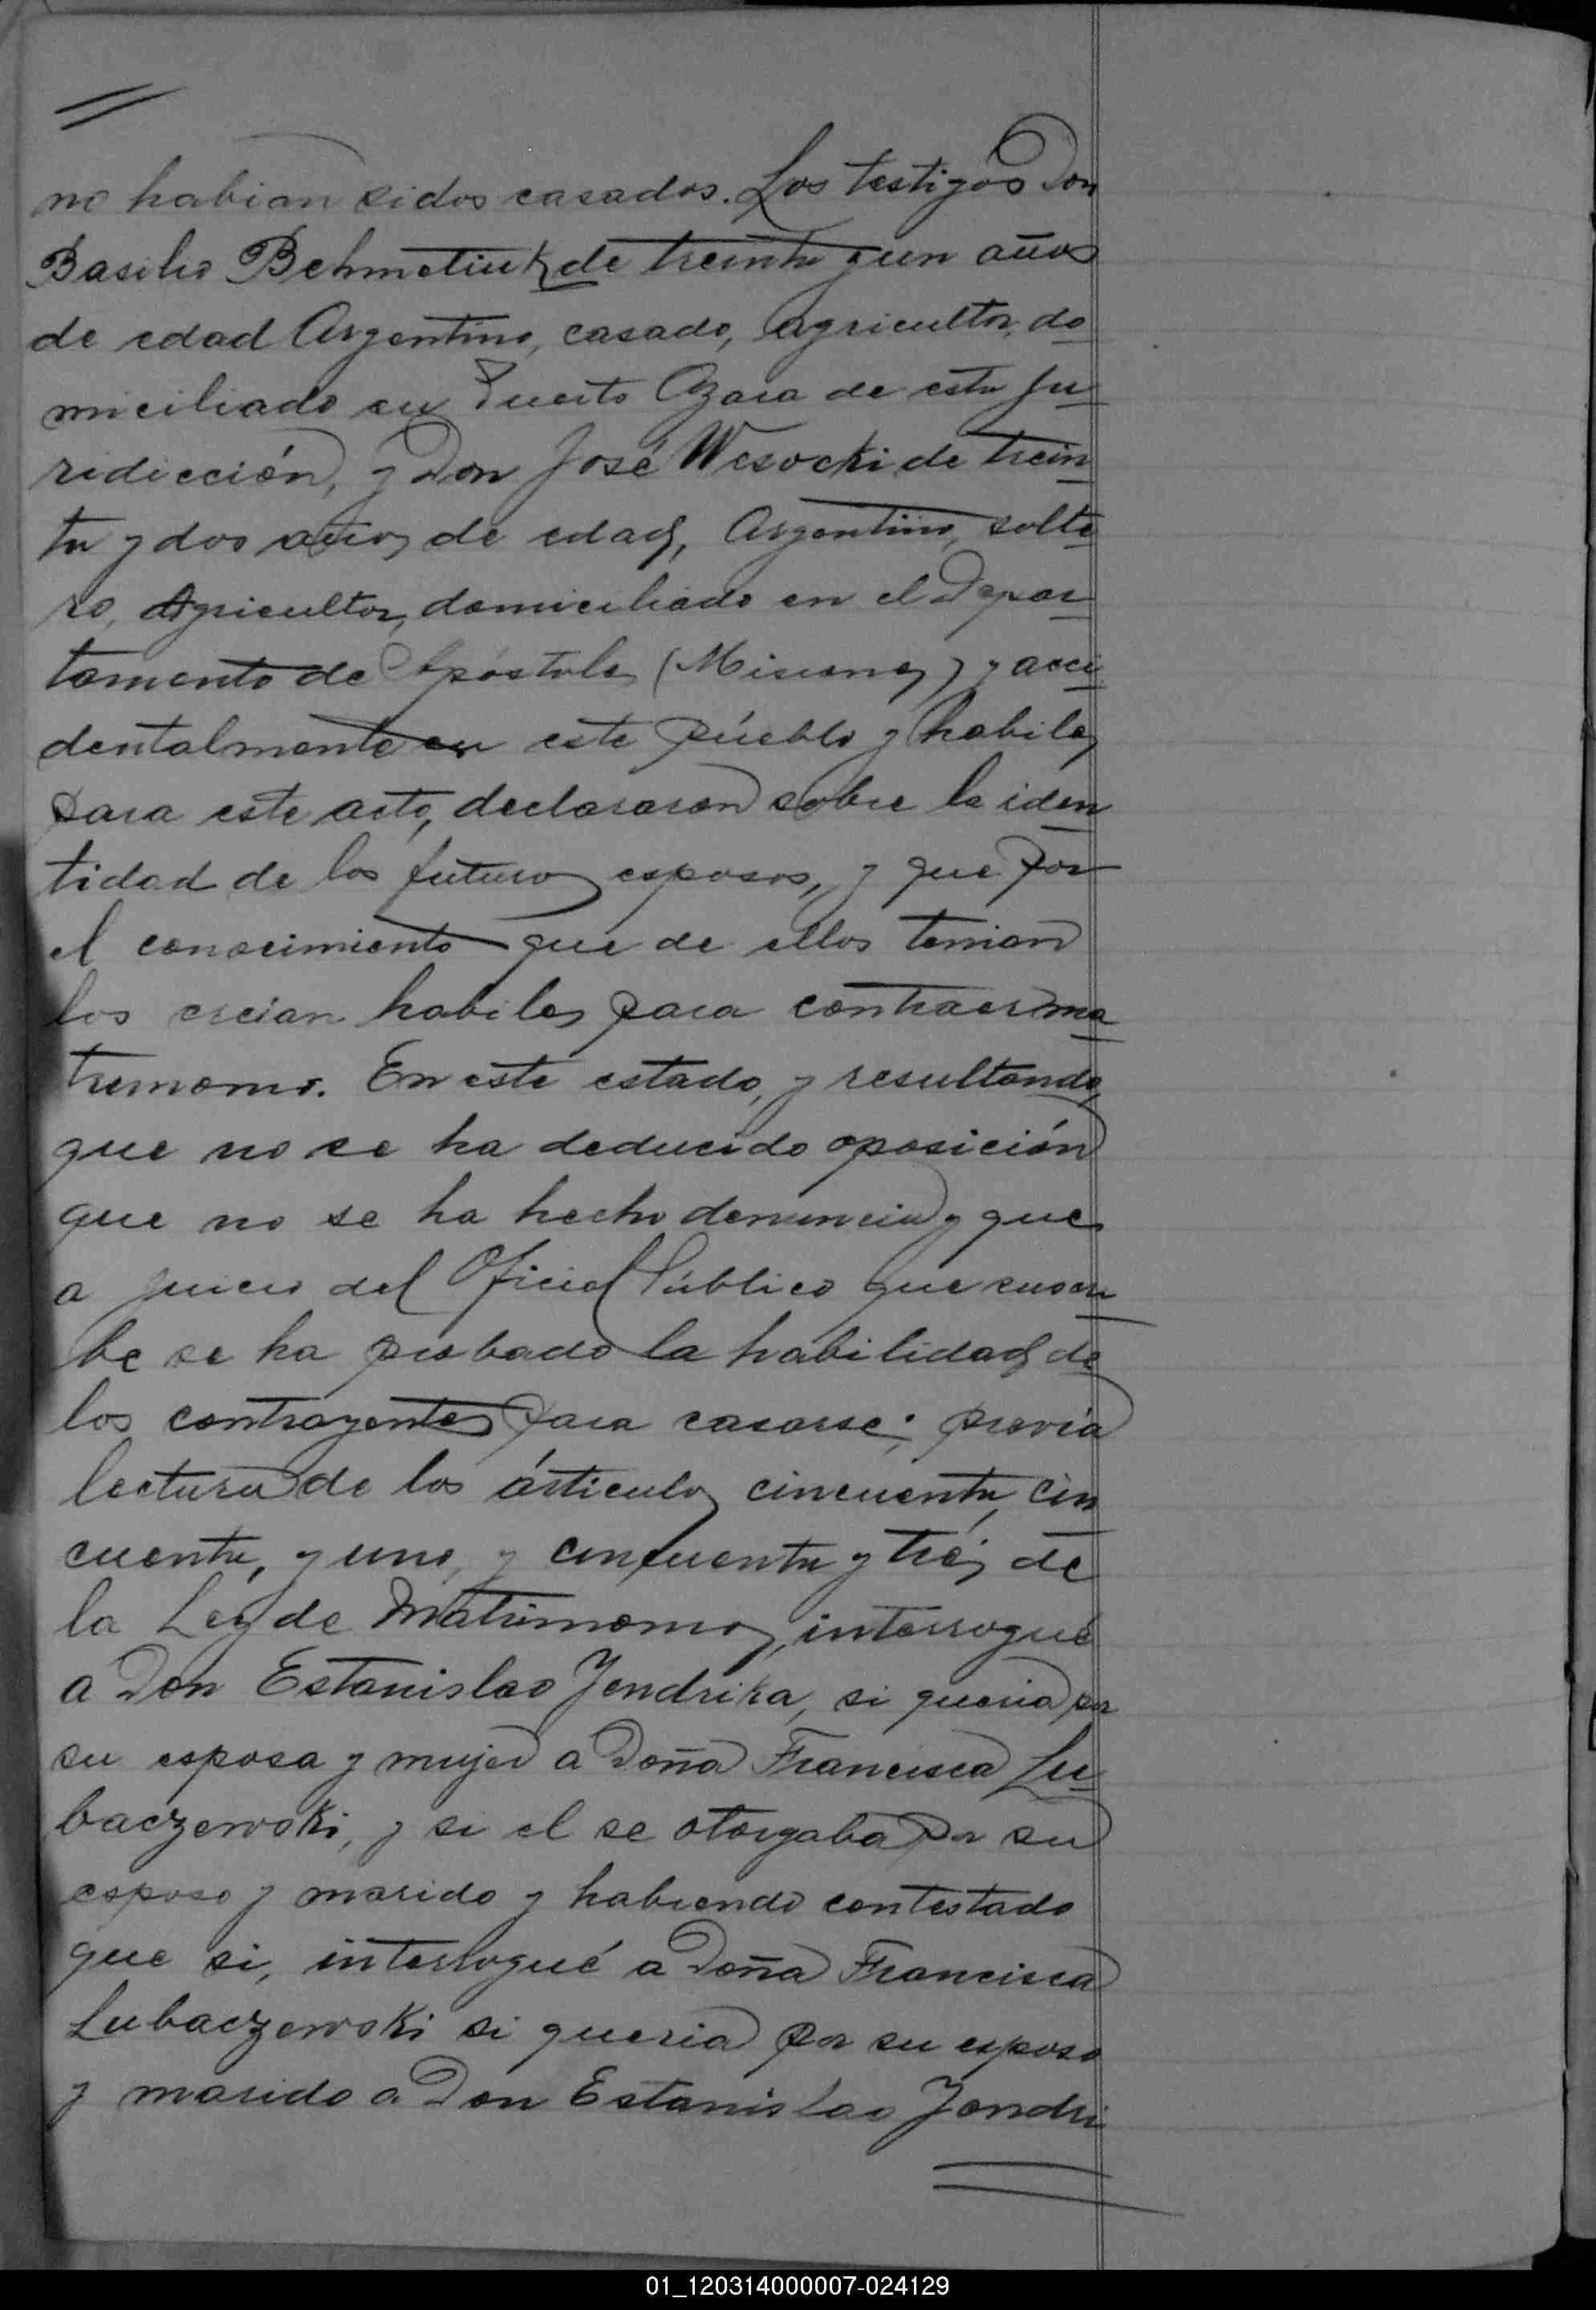 no habian sidos casados. Los testigos Don
Basilio Behmetiuk de treinta y un años
de edad Argentino, casado, agricultor, do
miciliado en Puerto Azara de esta ju
ridicción, y Don José Wesocki de trein
ta y dos años de edad, Argentino, solte
ro, Agricultor, domiciliado en el Depar
tamento de Apóstoles (Misiones) y acci
dentalmente en este púeblo y habiles
para este acto, declararon sobre la iden
tidad de los futuros esposos, y que por
el conocimiento que de ellos tenian
los creian habiles para contraer ma
trimonio. En este estado, y resultando,
que no se ha deducido oposición
que no se ha hecho denuncia y que
a juicio del Oficial Público que suscri
be se ha probado la habilidad de
los contrayentes para casarse; previa
lectura de los árticulos cincuenta, cin
cuenta, y uno, y cincuenta y trés de
la Ley de Matrimonios, interrogué
a Don Estanislao Jendrika, si queria por
su esposa y mujer a Doña Francisca Lu
baczewski, y si el se otorgaba por su
esposo y marido y habiendo contestado
que si, interrogué a Doña Francisca
Lubaczewski si queria por su esposo
y marido a Don Estanislao Jendri
01_120314000007-024129